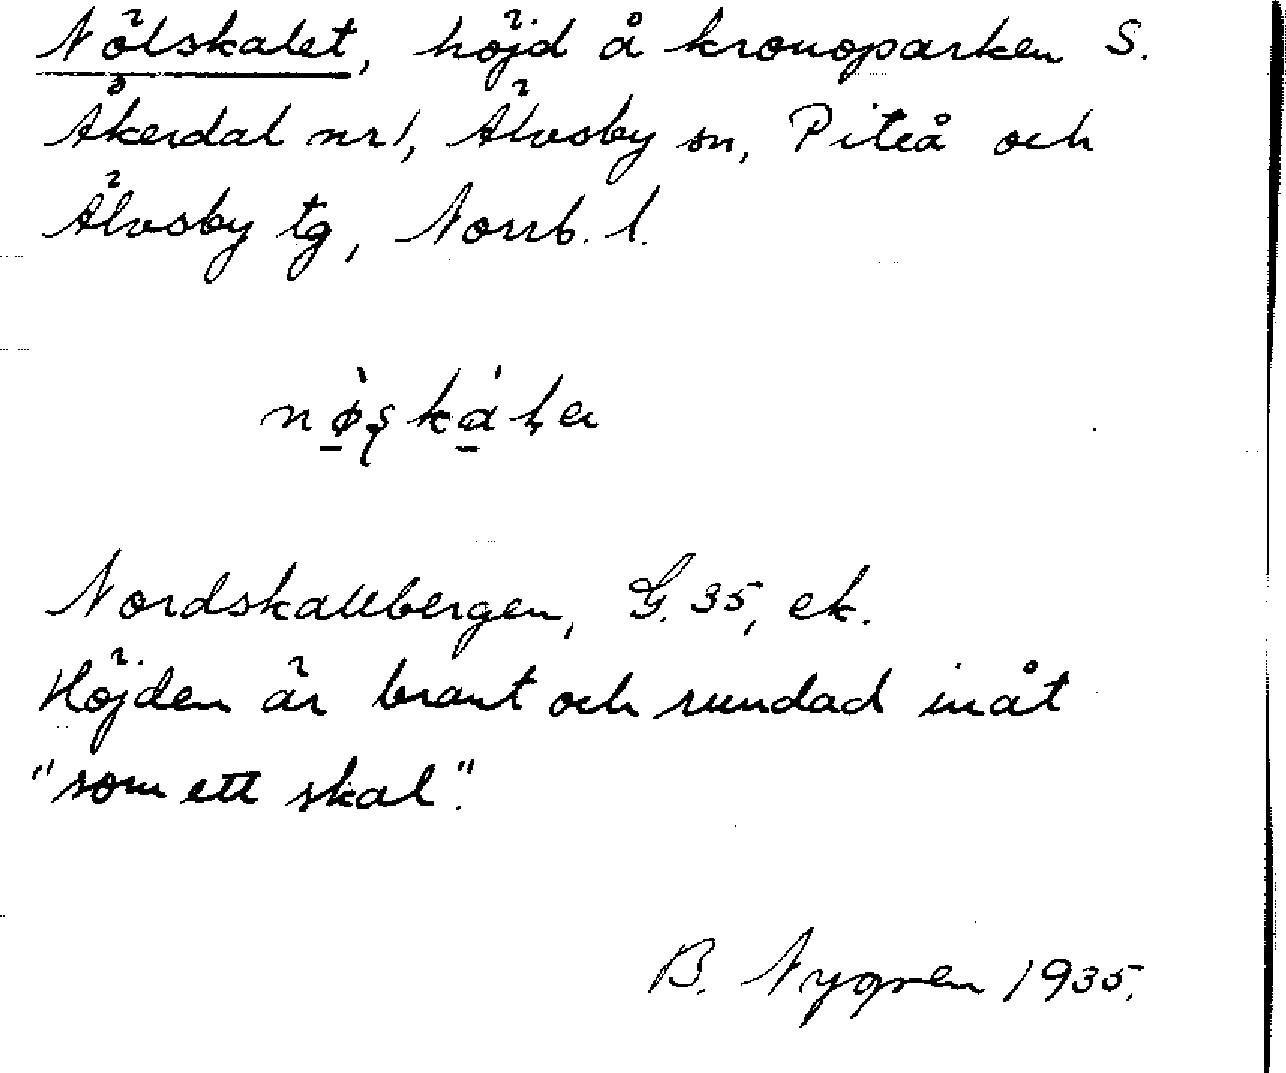 Nölskalet, höjd å kronoparken S.
Åkerdal nr 1, Älvsby sn, Piteå och
Älvsby tg, Norrb. l.
Nordskallbergen, G. 35, ek.
Höjden är brant och rundad inåt
"som ett skal".
B. Nygren 1935.